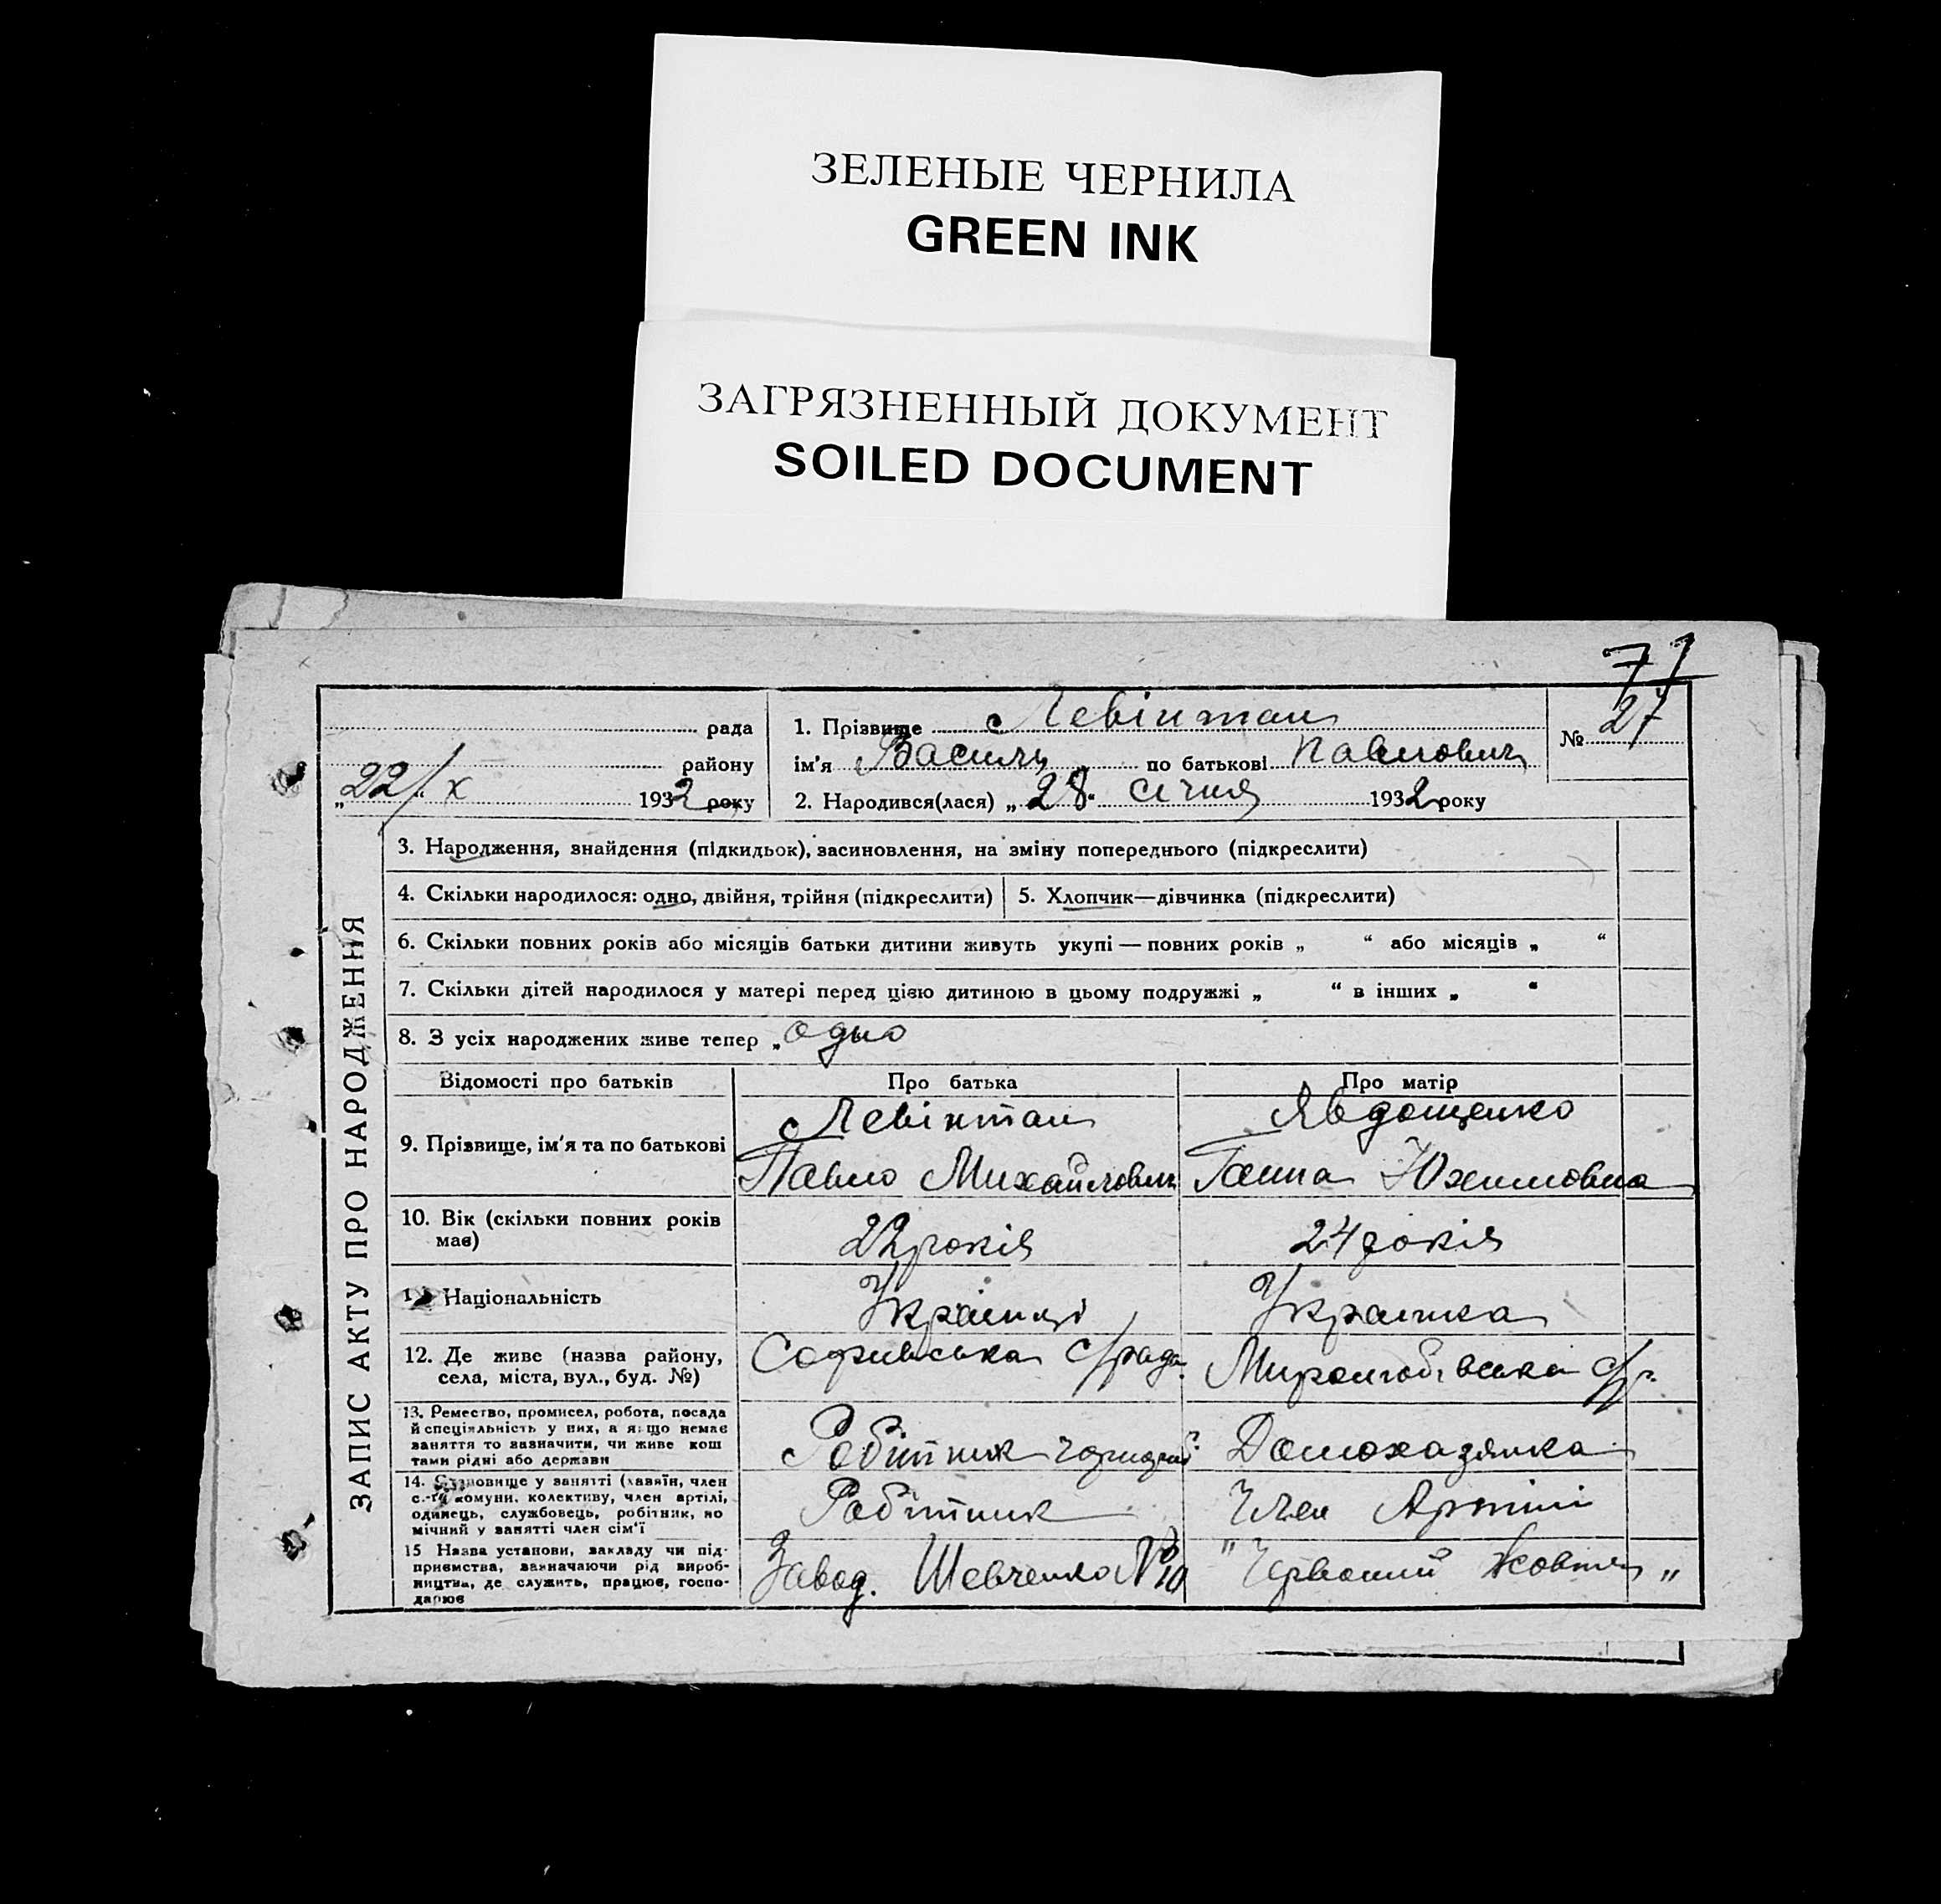 ЗЕЛЕНЫЕ ЧЕРНИЛА
GREEN INK
ЗАГРЯЗНЕННЫЙ ДОКУМЕНТ
SOILED DOCUMENT
71
27
ЗАПИС АКТУ ПРО НАРОДЖЕННЯ
рада
району
„22/X“ 1932 року
1. Прізвище Левінтан
№
ім'я Василь по батькові Павлович
2. Народився(лася) „28" січня 1932 року
3. Народження, знайдення (підкидьок), засиновлення, на зміну попереднього (підкреслити)
4. Скільки народилося: одно, двійня, трійня (підкреслити) 5. Хлопчик—дівчинка (підкреслити)
6. Скільки повних років або місяців батьки дитини живуть укупі — повних років „ “ або місяців „ “
7. Скільки дітей народилося у матері перед цією дитиною в цьому подружжі „ “ в інших „ “
8. З усіх народжених живе тепер „одно
Відомості про батьків Про батька Про матір
9. Прізвище, ім'я та по батькові
Левінтан
Павло Михайлович
Явдощенко
Ганна Юхимовна
10. Вік (скільки повних років має)
22 років
24 років
Національність
Українці
Украінка
12. Де живе (назва району, села, міста, вул., буд. №)
Софиівська с/рада
с/р.
13. Ремество, промисел, робота, посада
й спеціяльність у них, а якщо немає
заняття то зазначити, чи живе кош
тами рідні або держави
Робітник
Домохазяйка
14. Становище у занятті (хазяїн, член
с.-г. комуни, колективу, член артілі,
одинець, службовець, робітник, по
мічний у занятті член сім'ї
Робітник
Член Артілі
15 Назва установи, закладу чи під-
приємства, зазначаючи рід вироб-
ництва, де служить, працює, госпо-
дарює
Завод. Шевченка № 10
"Червоний Жовтень"